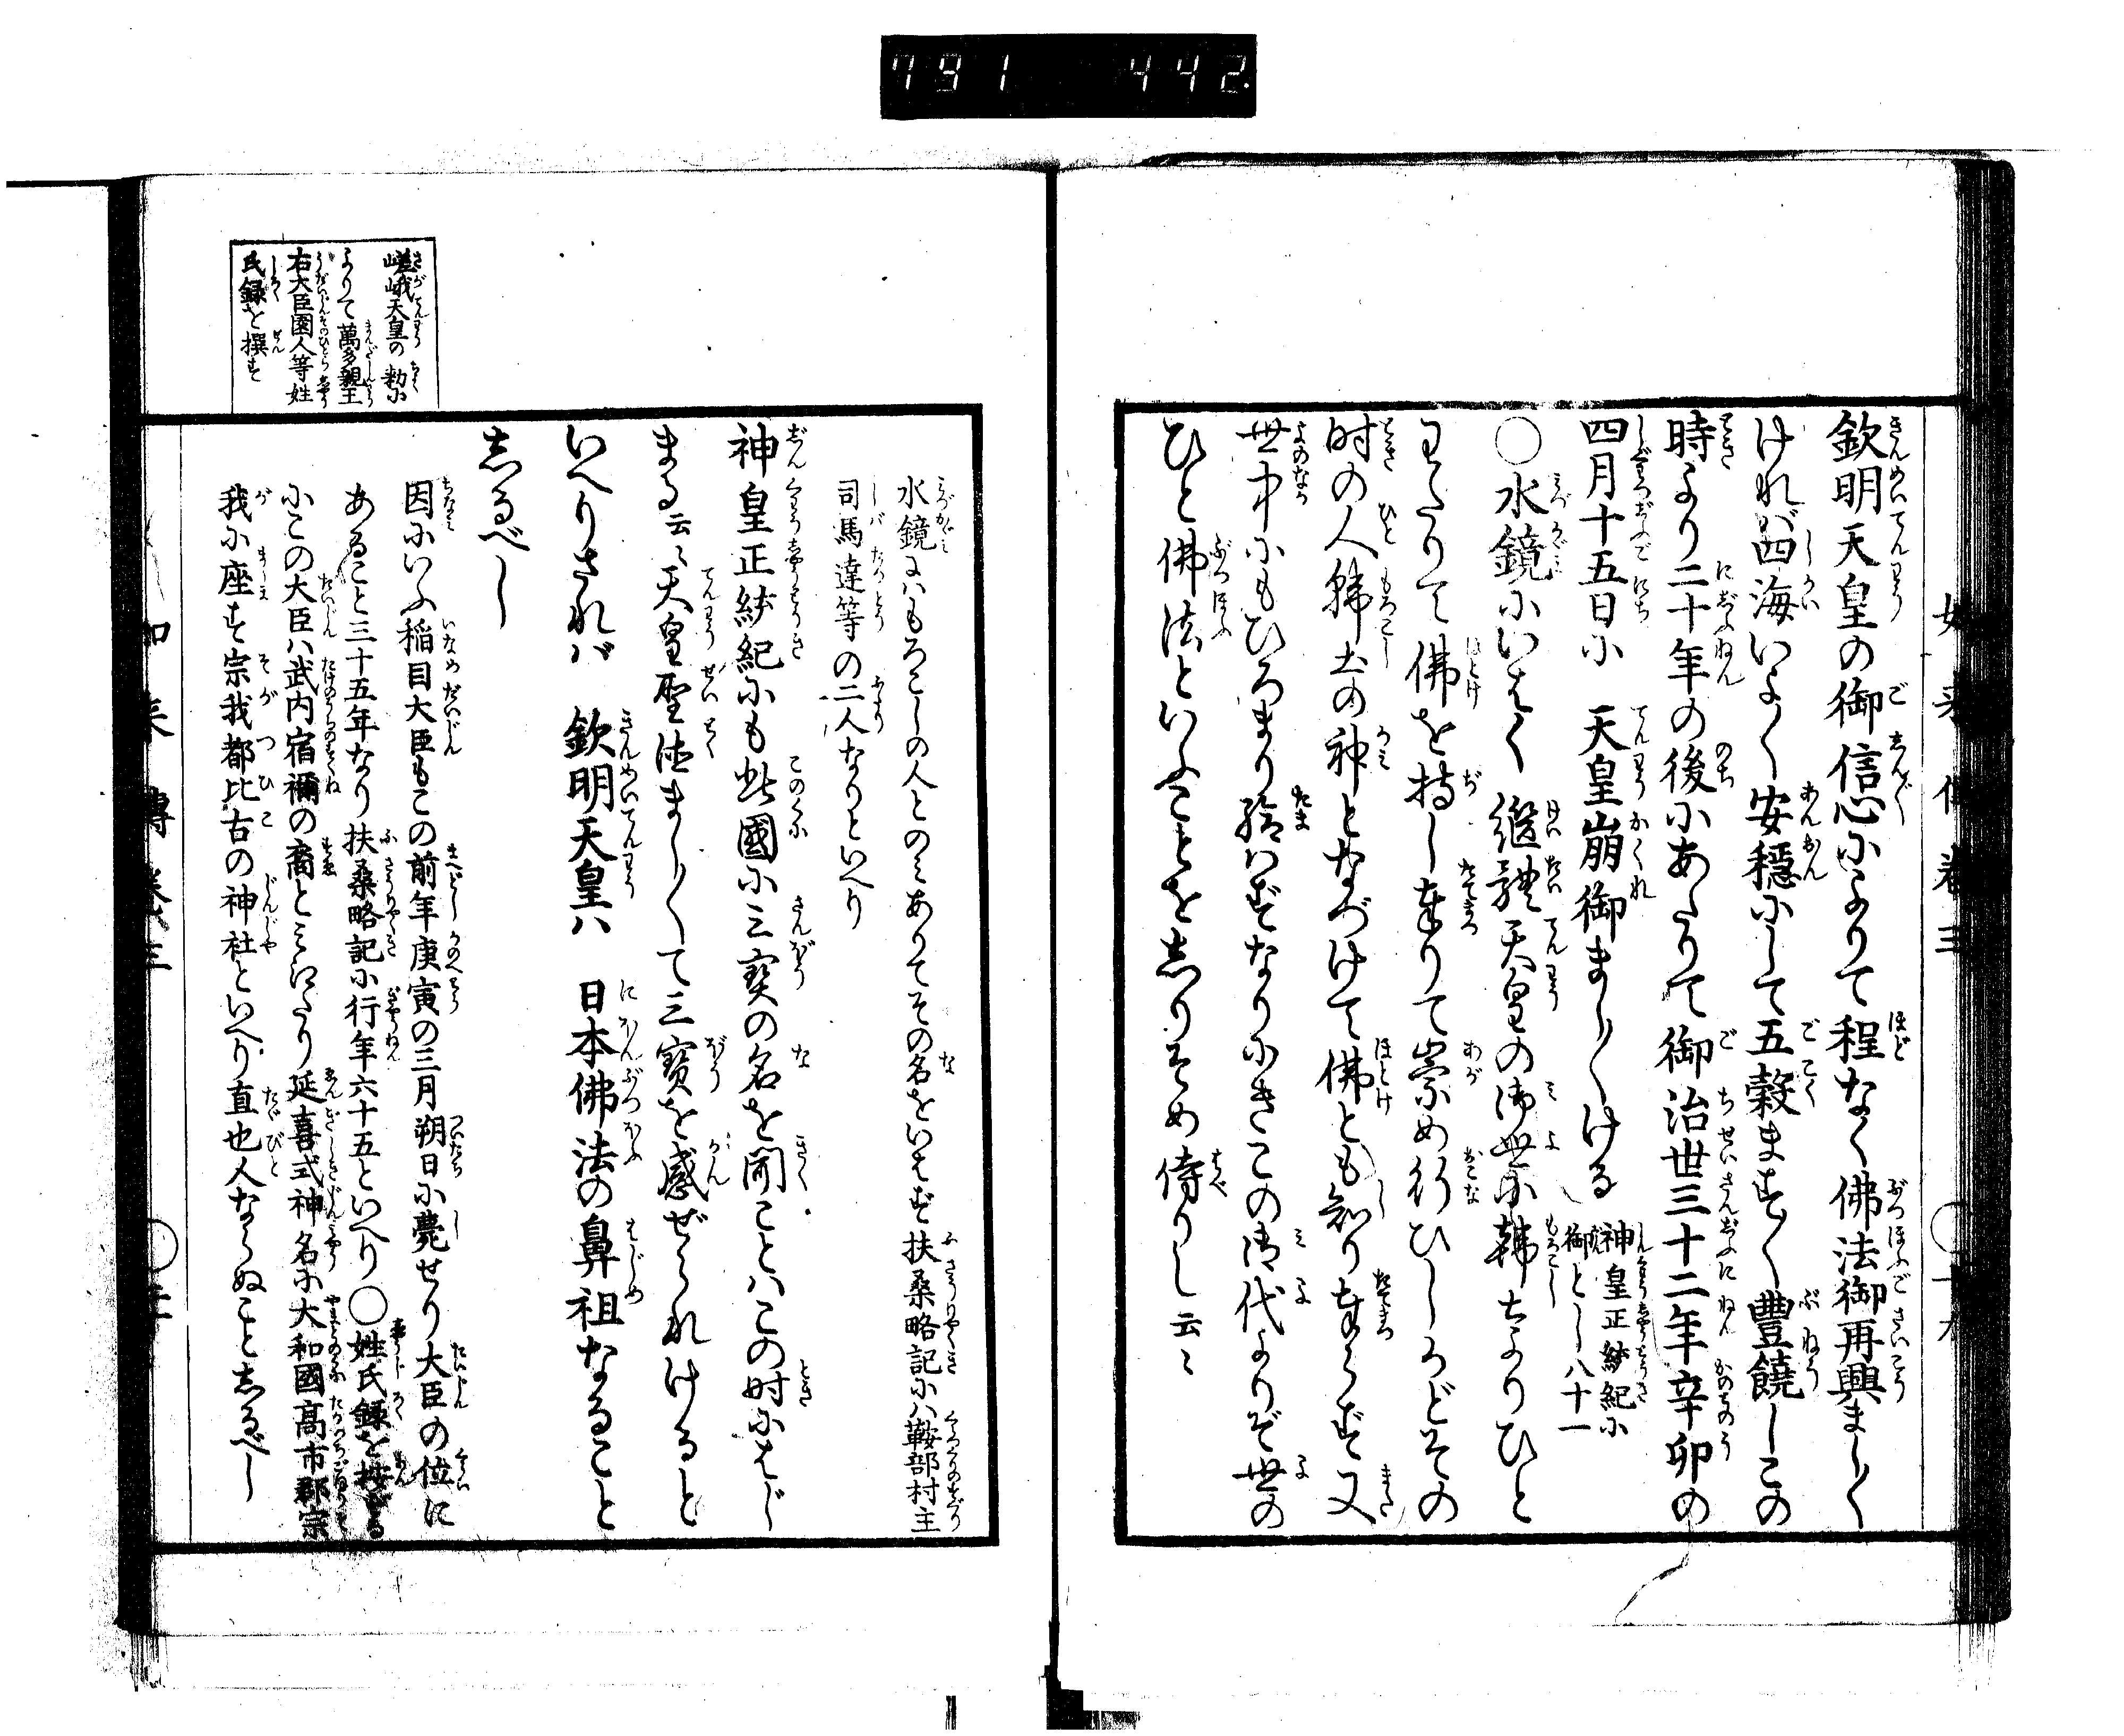 791 442
欽明天皇の御信心によりて程なく佛法御再興まし〳〵
ければ四海いよ〳〵安穏にして五穀ます〳〵豊饒しこの
時より二十年の後にあたりて御治世三十二年辛卯の
四月十五日に 天皇崩御まし〳〵ける
神皇正統紀に
御とし八十一
〇水鏡にいはく 継體天皇の御世に韓土よりひと
わたりて佛を持し奉りて崇め行ひしかどその
時の人韓土の神となづけて佛とも知り奉らず又
世中にもひろまり給はずなりにきこの御代よりぞ世の
ひと佛法といふことをしりそめ侍りし云々
水鏡にはもろこしの人とのみありてその名をいはず扶桑略記には鞍部村主
司馬達等の二人なりといへり
神皇正統紀にも此國に三寶の名を聞ことはこの時にはじ
まる云々天皇聖徳まし〳〵て三寶を感ぜられけると
いへりされば 欽明天皇は 日本佛法の鼻祖なること
しるべし
因にいふ稲目大臣もこの前年庚寅の三月朔日に薨せり大臣の位に
あること三十五年なり扶桑略記に行年六十五といへり〇姓氏録を按ずる
にこの大臣は武内宿禰の裔とみえたり延喜式神名に大和國高市郡宗
我に座す宗我都比古の神社といへり直也人ならぬことしるべし
嵯峨天皇の勅に
よりて萬多親王
右大臣園人等姓
氏録を撰す